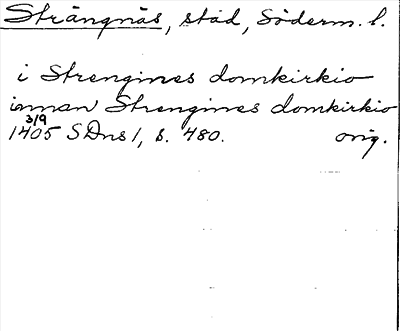 Strängnäs, stad, Söderm. l.
i Strengines domkirkio
innan Strengines domkirkio
3/9
1405 SDns 1, s. 480. orig.